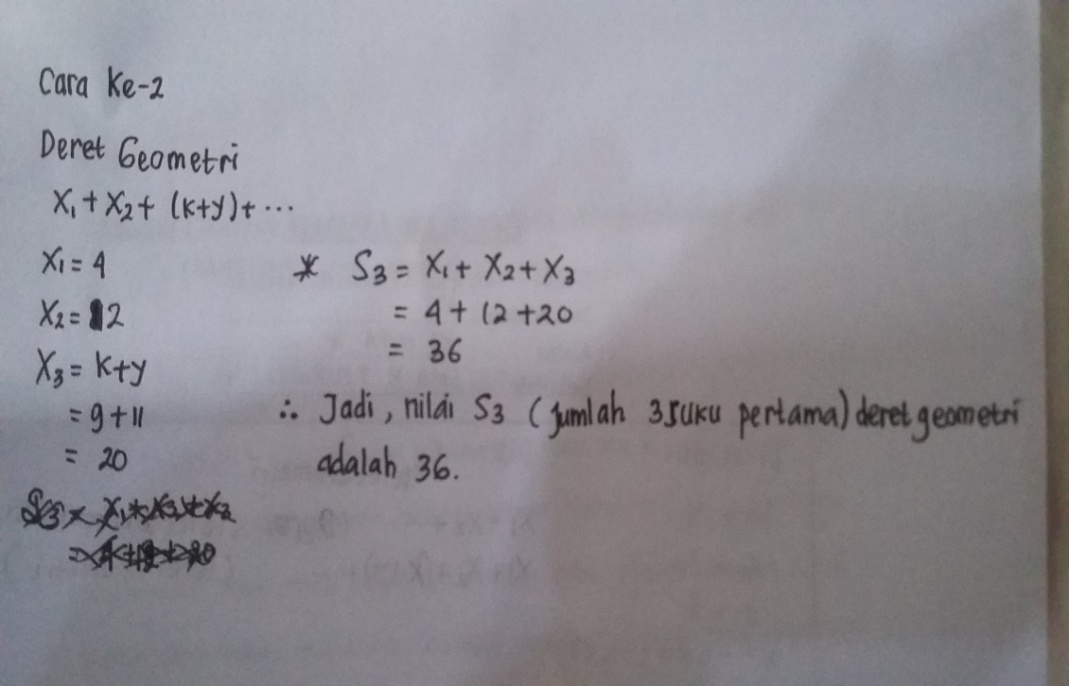 Cara Ke-2
Deret Geometri
X₁ + X₂ + (k+y) + ...
X₁ = 4
X₂ = 12
X₃ = k+y
= 9 + 11
= 20
* S₃ = X₁ + X₂ + X₃
= 4 + 12 + 20
= 36
∴ Jadi, nilai S₃ (jumlah 3 suku pertama) deret geometri
adalah 36.